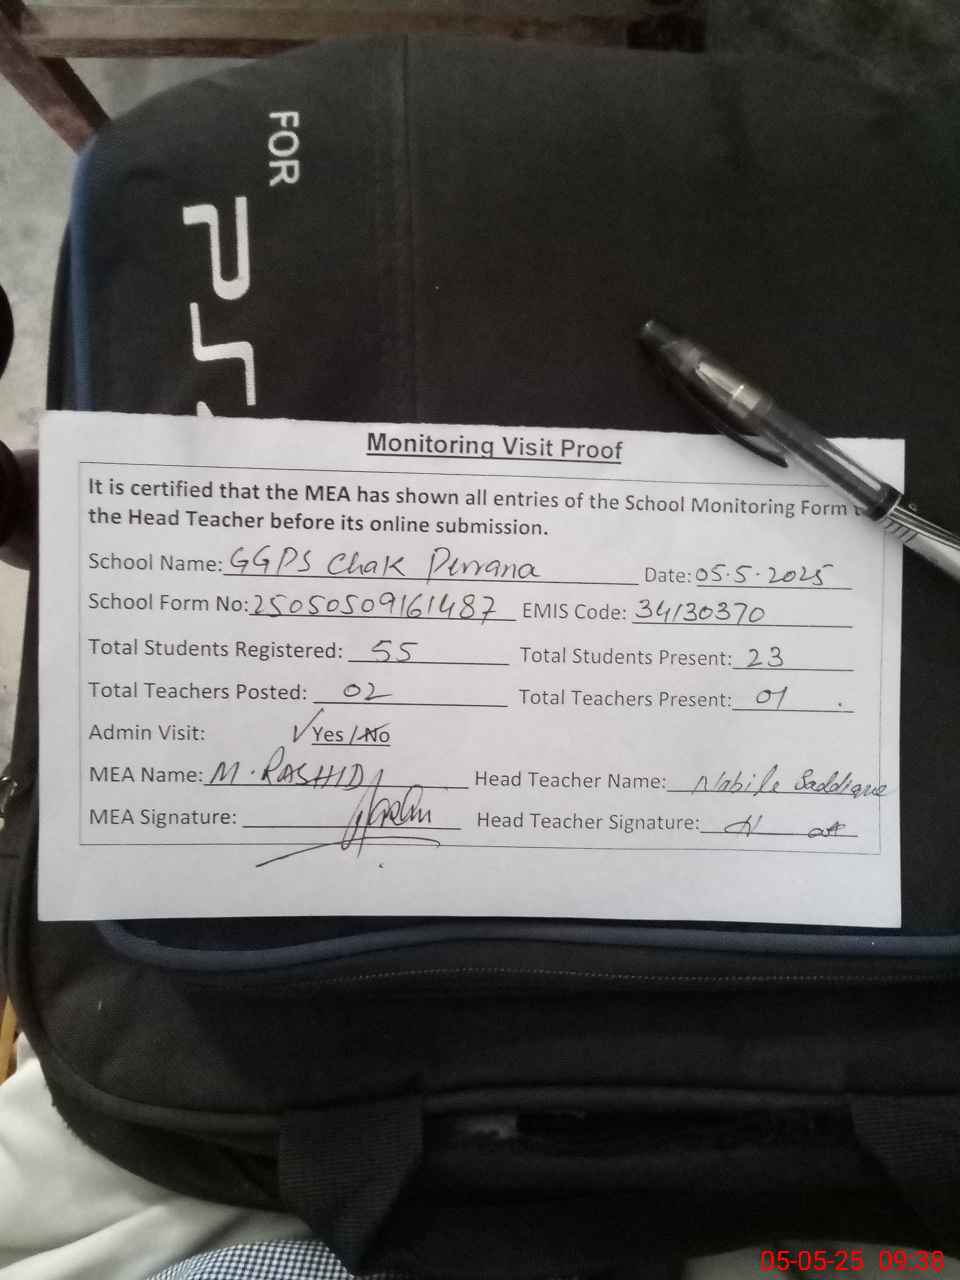 FOR
PS
Monitoring Visit Proof
It is certified that the MEA has shown all entries of the School Monitoring Form
the Head Teacher before its online submission.
School Name: GGPS Chak Perrana Date: 05.5.2025
School Form No: 25050509161487 EMIS Code: 34130370
Total Students Registered: 55 Total Students Present: 23
Total Teachers Posted: 02 Total Teachers Present: 01
Admin Visit: ✓Yes / No
MEA Name: M. RASHID Head Teacher Name: Nabila Saddique
MEA Signature: Head Teacher Signature:
05-05-25 09:38